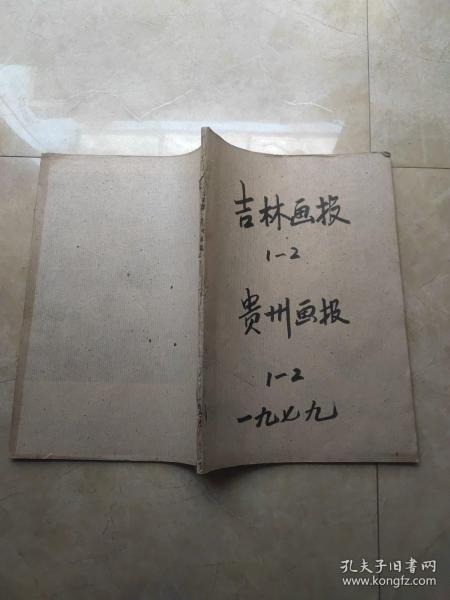 吉林画报
1-2
貴州画报
1-2
一九七九
孔夫子旧书网
www.kongfz.com